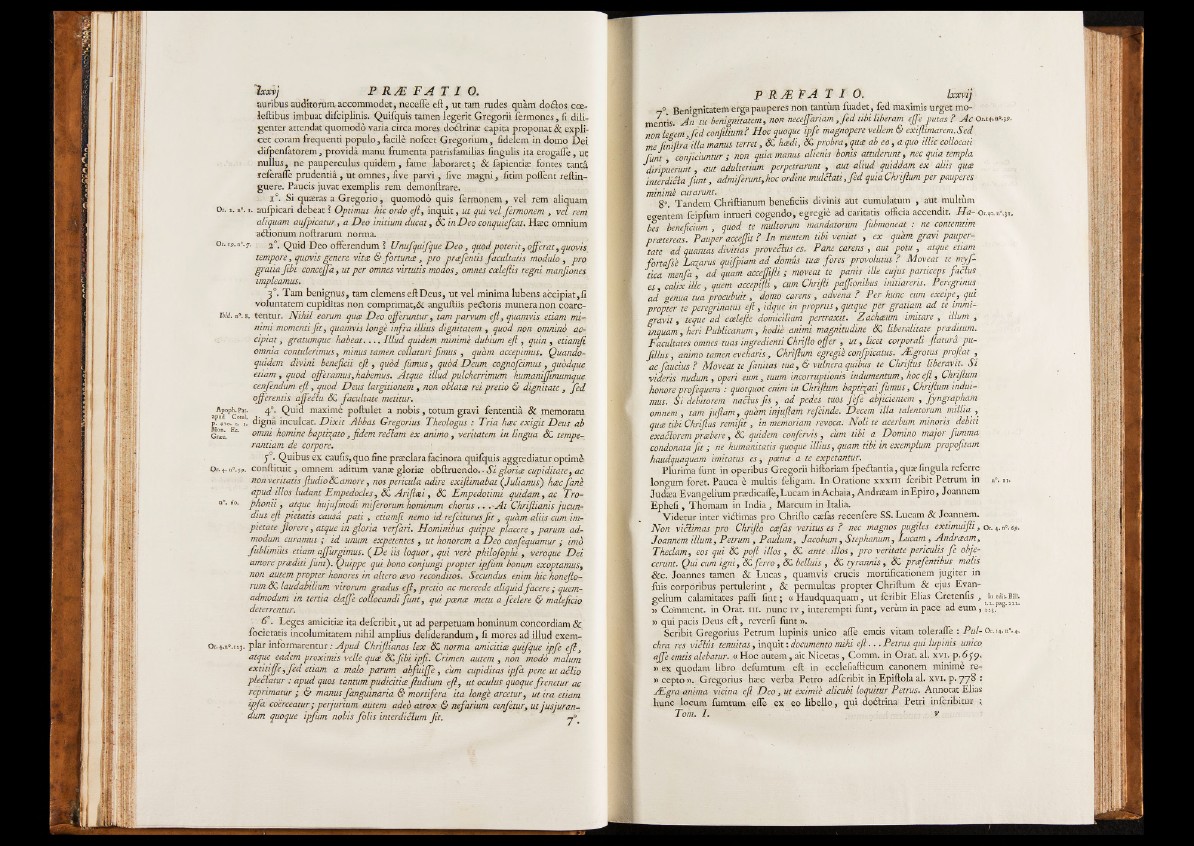 lxxvj PRÆFATIO.
auribus auditorum accommodet, necesse est, ut tam rudes quàm doctos cœ-
lestibus imbuat disciplinis. Quisquis tamen legerit Gregorii sermones, si dili-
genter attendat quomodò varia circa mores doctrinæ capita proponat & expli-
cet coram frequenti populo, facilè noscet Gregorium, fidelem in domo Dei
dispensatorem, providâ manu frumenta patrisfamilias singulis ita erogasse, ut
nullus, ne pauperculus quidem, fame laboraret; & sapientiæ fontes tantâ
reserasse prudentiâ, ut omnes, sive parvi, sive magni, sitim possent restin-
guere. Paucis juvat exemplis rem demonstrare.
1°. Si quæras a Gregorio, quomodò quis sermonem, vel rem aliquam
Or. 2. n°. 1. auspicari debeat? Optimus hic ordo est, inquit, ut qui vel sermonem, vel rem
aliquam auspicatur, a Deo initium ducat, & in Deo conquiescat. Hæc omnium
actionum nostrarum norma.
Or. 19. n°. 7. 2°. Quid Deo offerendum? Unusquisque Deo, quod poterit, offerat, quovis
tempore, quovis genere vitæ & fortunæ, pro præsentis facultatis modulo, pro
gratia sibi concessa, ut per omnes virtutis modos, omnes cælestis regni mansiones
impleamus.
3°. Tam benignus, tam clemens est Deus, ut vel minima lubens accipiat, si
voluntatem cupiditas non comprimat, & angustiis pectoris munera non coarc-
Ibid. n°. 8. tentur. Nihil eorum quæ Deo offeruntur, tam parvum est, quamvis etiam mi-
nimi momenti sit, quamvis longè infra illius dignitatem, quod non omninò ac-
cipiat, gratumque habeat.... Illud quidem minimè dubium est, quin, etiamsi
omnia contulerimus, minus tamen collaturi simus, quàm accepimus. Quando-
quidem divini beneficii est, quòd simus, quòd Deum cognoscimus, quòdque
etiam, quod offeramus, habemus. Atque illud pulcherrimum humanissimumque
censendum est, quod Deus largitionem, non oblatæ rei pretio & dignitate, sed
offerentis affectu & facultate metitur.
Apoph. Pat. apud Cotel. Mon. Ec. Græc. 4°. Quid maximè postulet a nobis, totum gravi sententiâ & memoratu
dignâ inculcat. Dixit Abbas Gregorius Theologus: Tria hæc exigit Deus ab
omni homine baptizato, fidem rectam ex animo, veritatem in lingua & tempe-
rantiam de corpore.
5°. Quibus ex causis, quo fine præclara facinora quisquis aggrediatur optimè
Or. 4. n°. 59. constituit, omnem aditum vanæ gloriæ obstruendo. Si gloriæ cupiditate, ac
non veritatis studio & amore, nos pericula adire existimabat (Julianus) hæc sanè
apud illos ludant Empedocles, & Aristæi, & Empedotimi quidam, ac Tro-
n°. 60. phonii, atque hujusmodi miserorum hominum chorus.... At Christianis jucun-
dius est pietatis causâ pati, etiamsi nemo id resciturus sit, quàm aliis cum im-
pietate florere, atque in gloria versari. Hominibus quippe placere, parum ad-
modum curamus; id unum expetentes, ut honorem a Deo consequamur; imò
sublimius etiam assurgimus. (De iis loquor, qui verè philosophi, veroque Dei
amore præditi sunt). Quippe qui bono conjungi propter ipsum bonum exoptamus,
non autem propter honores in altero ævo reconditos. Secundus enim hic honesto-
rum & laudabilium virorum gradus est, pretio ac mercede aliquid facere; quem-
admodum in tertia classe collocandi sunt, qui pœnæ metu a scelere & maleficio
deterrentur.
6°. Leges amicitiæ ita describit, ut ad perpetuam hominum concordiam &
societatis incolumitatem nihil amplius desiderandum, si mores ad illud exem-
Or. 4. n°. 123. plar informarentur: Apud Christianos lex & norma amicitiæ quisque ipse est,
atque eadem proximis velle quæ & sibi ipsi. Crimen autem, non modò malum
extitisse, sed etiam a malo parum abfuisse, cùm cupiditas ipsa pene ut actio
plectatur: apud quos tantum pudicitiæ studium est, ut oculus quoque frenetur ac
reprimatur; & manus sanguinaria & mortifera ita longè arcetur, ut ira etiam
ipsa coerceatur; perjurium autem adeò atrox & nefarium censetur, ut jusjuran-
dum quoque ipsum nobis solis interdictum sit. 7°.
PRÆFATIO. lxxvij
7°. Benignitatem erga pauperes non tantùm suadet, sed maximis urget mo-
mentis. An tu benignitatem, non necessariam, sed tibi liberam esse putas? Ac Or. 14. n°. 39.
non legem, sed consilium? Hoc quoque ipse magnopere vellem & existimarem. Sed
me sinistra illa manus terret, & hædi, & probra, quæ ab eo, a quo illic collocati
sunt, conjiciuntur; non quia manus alienis bonis attulerunt, nec quia templa
diripuerunt, aut adulterium perpetrarunt, aut aliud quiddam ex aliis quæ
interdicta sunt, admiserunt, hoc ordine mulctati, sed quia Christum per pauperes
minimè curarunt.
8°. Tandem Christianum beneficiis divinis aut cumulatum, aut multùm
egentem seipsum intueri cogendo, egregiè ad caritatis officia accendit. Ha- Or. 40. n°. 31.
bes beneficium, quod te multorum mandatorum submoneat: ne contemtim
prætereas. Pauper accessit? In mentem tibi veniat, ex quàm gravi pauper-
tate ad quantas divitias provectus es. Pane carens, aut potu, atque etiam
fortassè Lazarus quispiam ad domûs tuæ fores provolutus? Moveat te mys-
tica mensa, ad quam accessisti; moveat te panis ille cujus particeps factus
es, calix ille, quem accepisti, cum Christi passionibus initiareris. Peregrinus
ad genua tua procubuit, domo carens, advena? Per hunc eum excipe, qui
propter te peregrinatus est, idque in propriis, quique per gratiam ad te immi-
gravit, teque ad cœleste domicilium pertraxit. Zachæum imitare, illum,
inquam, heri Publicanum, hodiè animi magnitudine & liberalitate præditum.
Facultates omnes tuas ingredienti Christo offer, ut, licet corporali staturâ pu-
sillus, animo tamen evebaris, Christum egregiè conspicatus. Ægrotus prostat,
ac saucius? Moveat te sanitas tua, & vulnera quibus te Christus liberavit. Si
videris nudum, operi eum, tuum incorruptionis indumentum, hoc est, Christum
honore prosequens: quotquot enim in Christum baptizati sumus, Christum indui-
mus. Si debitorem nactus sis, ad pedes tuos sese abjicientem, syngrapham
omnem, tam justam, quàm injustam rescinde. Decem illa talentorum millia,
quæ tibi Christus remisit, in memoriam revoca. Noli te acerbum minoris debiti
exactorem præbere, & quidem conservis, cùm tibi a Domino major summa
condonata sit; ne humanitatis quoque illius, quam tibi in exemplum propositam
haudquaquam imitatus es, pœnæ a te expetantur.
Plurima sunt in operibus Gregorii historiam spectantia, quæ singula referre
longum foret. Pauca è multis seligam. In Oratione XXXIII scribit Petrum in n°. 11.
Judæa Evangelium prædicasse, Lucam in Achaia, Andræam in Epiro, Joannem
Ephesi, Thomam in India, Marcum in Italia.
Videtur inter victimas pro Christo cæsas recensere SS. Lucam & Joannem.
Non victimas pro Christo cæsas veritus es? nec magnos pugiles extimuisti, Or. 4. n°. 69.
Joannem illum, Petrum, Paulum, Jacobum, Stephanum, Lucam, Andræam,
Theclam, eos qui & post illos, & ante illos, pro veritate periculis se obje-
cerunt. Qui cum igni, & ferro, & belluis, & tyrannis, & præsentibus malis
&c. Joannes tamen & Lucas, quamvis crucis mortificationem jugiter in
suis corporibus pertulerint, & permultas propter Christum & ejus Evan-
gelium calamitates passi sint; « Haudquaquam, ut scribit Elias Cretensis,
» Comment. in Orat. III. nunc IV, interempti sunt, verùm in pace ad eum,
» qui pacis Deus est, reversi sunt ».
Scribit Gregorius Petrum lupinis unico asse emtis vitam tolerasse: Pul- Or. 14. n°. 4.
chra res victûs tenuitas, inquit: documento mihi est... Petrus qui lupinis unico
asse emtis alebatur. « Hoc autem, ait Nicetas, Comm. in Orat. al. XVI. p. 659.
» ex quodam libro desumtum est in ecclesiasticum canonem minimè re-
» cepto ». Gregorius hæc verba Petro adscribit in Epistola al. XVI. p. 778:
Ægra anima vicina est Deo, ut eximiè alicubi loquitur Petrus. Annotat Elias
hunc locum sumtum esse ex eo libello, qui doctrina Petri inscribitur;
Tom. I. v